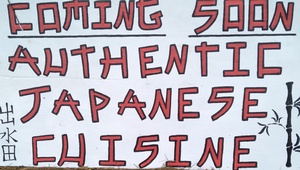 COMING SOON
AUTHENTIC
JAPANESE
CUISINE
出水田